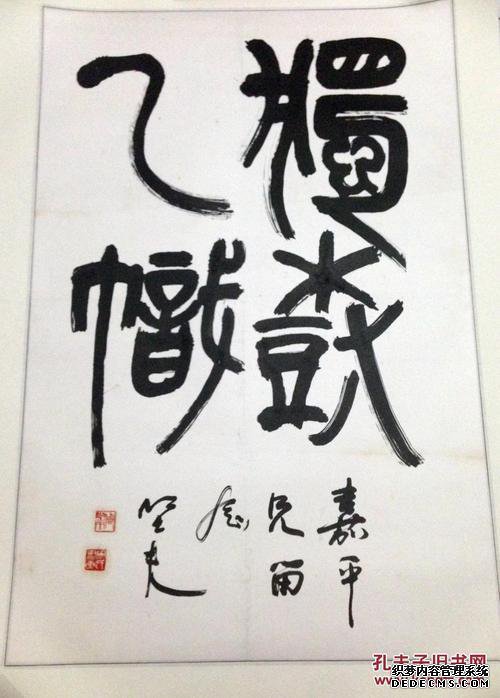 獨樹
乙幟
嘉平
兄留
念
孔夫子旧书网
织梦内容管理系统
DEDECMS.COM